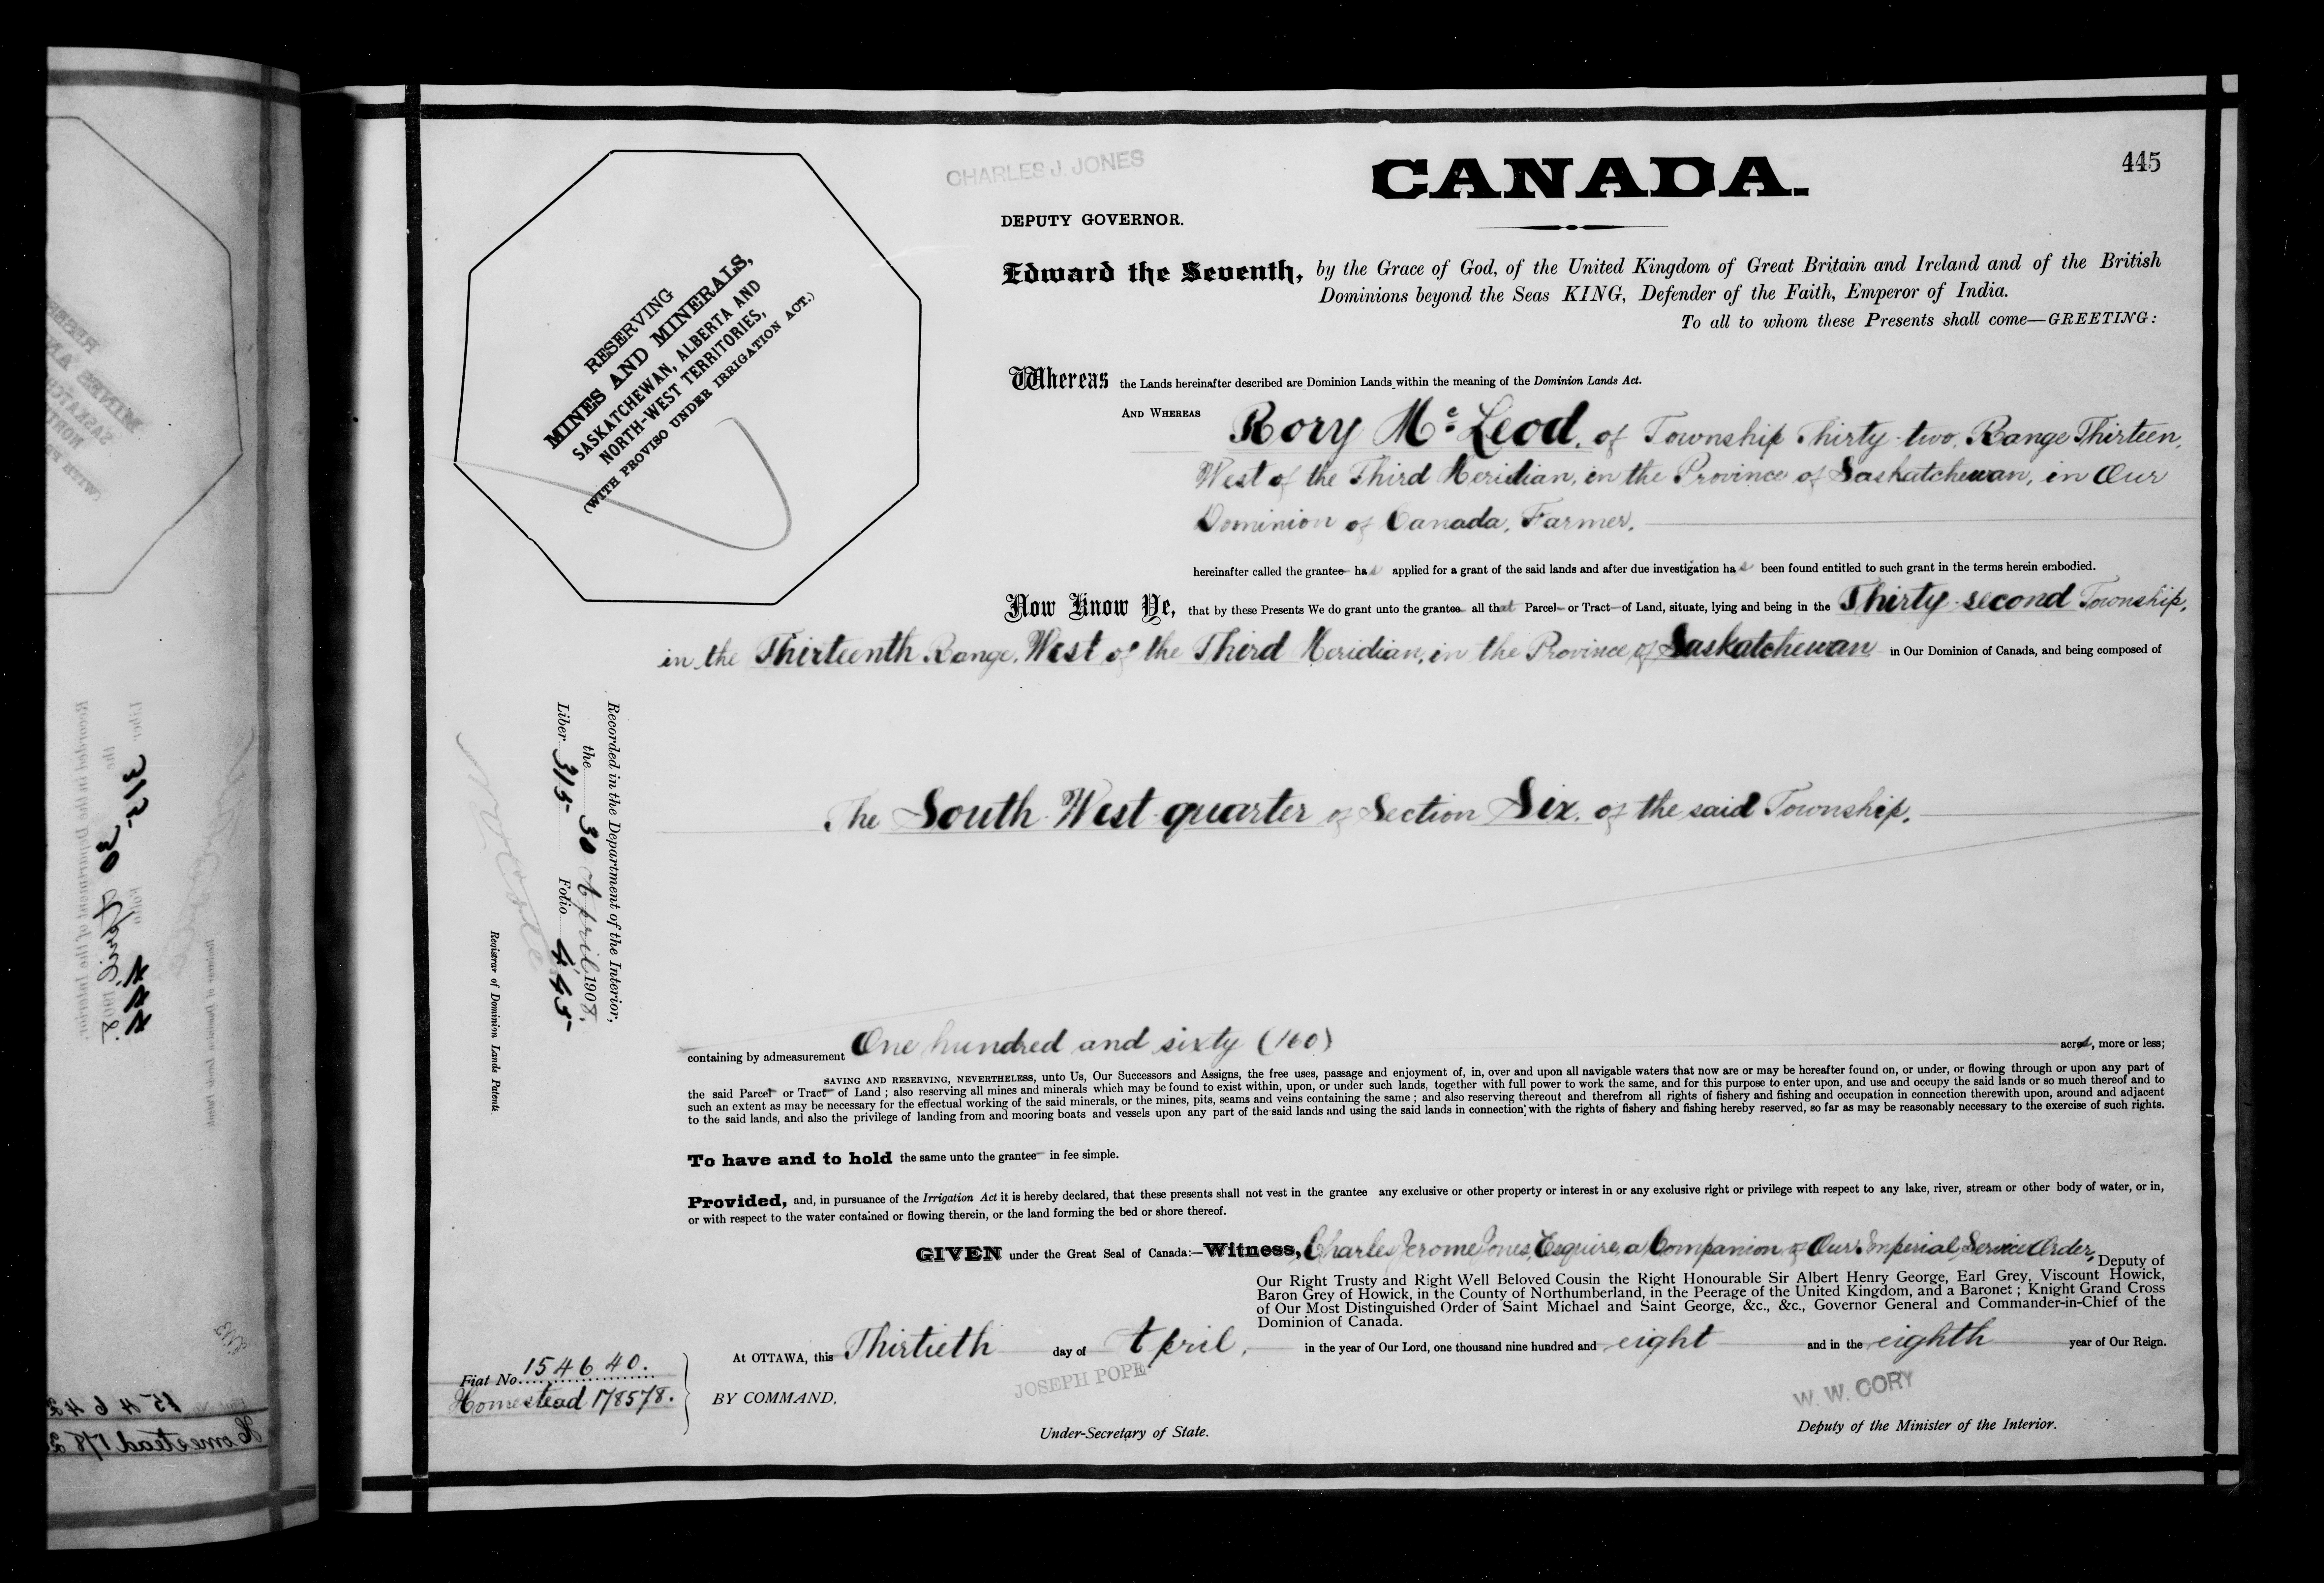 445
CHARLES J. JONES
CANADA.
DEPUTY GOVERNOR.
RESERVING
MINES AND MINERALS,
SASKATCHEWAN, ALBERTA AND
NORTH-WEST TERRITORIES,
(WITH PROVISO UNDER IRRIGATION ACT.)
Edward the Seventh, by the Grace of God, of the United Kingdom of Great Britain and Ireland and of the British
Dominions beyond the Seas KING, Defender of the Faith, Emperor of India.
To all to whom these Presents shall come—GREETING:
Whereas the Lands hereinafter described are Dominion Lands within the meaning of the Dominion Lands Act.
AND WHEREAS Rory McLeod, of Township Thirty-two, Range Thirteen,
West of the Third Meridian, in the Province of Saskatchewan, in Our
Dominion of Canada, Farmer,
hereinafter called the grantee has applied for a grant of the said lands and after due investigation has been found entitled to such grant in the terms herein embodied.
Now Know Ye, that by these Presents We do grant unto the grantee all that Parcel or Tract of Land, situate, lying and being in the Thirty-second Township,
in the Thirteenth Range, West of the Third Meridian, in the Province of Saskatchewan in Our Dominion of Canada, and being composed of
The South West quarter of Section Six, of the said Township.
Recorded in the Department of the Interior,
the 30 April 1908,
Liber 315 Folio 445
Registrar of Dominion Lands Patents
containing by admeasurement One hundred and sixty (160) acres, more or less;
SAVING AND RESERVING, NEVERTHELESS, unto Us, Our Successors and Assigns, the free uses, passage and enjoyment of, in, over and upon all navigable waters that now are or may be hereafter found on, or under, or flowing through or upon any part of
the said Parcel or Tract of Land; also reserving all mines and minerals which may be found to exist within, upon, or under such lands, together with full power to work the same, and for this purpose to enter upon, and use and occupy the said lands or so much thereof and to
such an extent as may be necessary for the effectual working of the said minerals, or the mines, pits, seams and veins containing the same; and also reserving thereout and therefrom all rights of fishery and fishing and occupation in connection therewith upon, around and adjacent
to the said lands, and also the privilege of landing from and mooring boats and vessels upon any part of the said lands and using the said lands in connection with the rights of fishery and fishing hereby reserved, so far as may be reasonably necessary to the exercise of such rights.
To have and to hold the same unto the grantee in fee simple.
Provided, and, in pursuance of the Irrigation Act it is hereby declared, that these presents shall not vest in the grantee any exclusive or other property or interest in or any exclusive right or privilege with respect to any lake, river, stream or other body of water, or in,
or with respect to the water contained or flowing therein, or the land forming the bed or shore thereof.
GIVEN under the Great Seal of Canada:—Witness, Charles Jerome Jones, Esquire, a Companion of Our Imperial Service Order, Deputy of
Our Right Trusty and Right Well Beloved Cousin the Right Honourable Sir Albert Henry George, Earl Grey, Viscount Howick,
Baron Grey of Howick, in the County of Northumberland, in the Peerage of the United Kingdom, and a Baronet; Knight Grand Cross
of Our Most Distinguished Order of Saint Michael and Saint George, &c., &c., Governor General and Commander-in-Chief of the
Dominion of Canada.
At OTTAWA, this Thirtieth day of April, in the year of Our Lord, one thousand nine hundred and eight and in the eighth year of Our Reign.
Fiat No. 154640.
Homestead 178578.
BY COMMAND,
JOSEPH POPE
Under-Secretary of State.
W. W. CORY
Deputy of the Minister of the Interior.